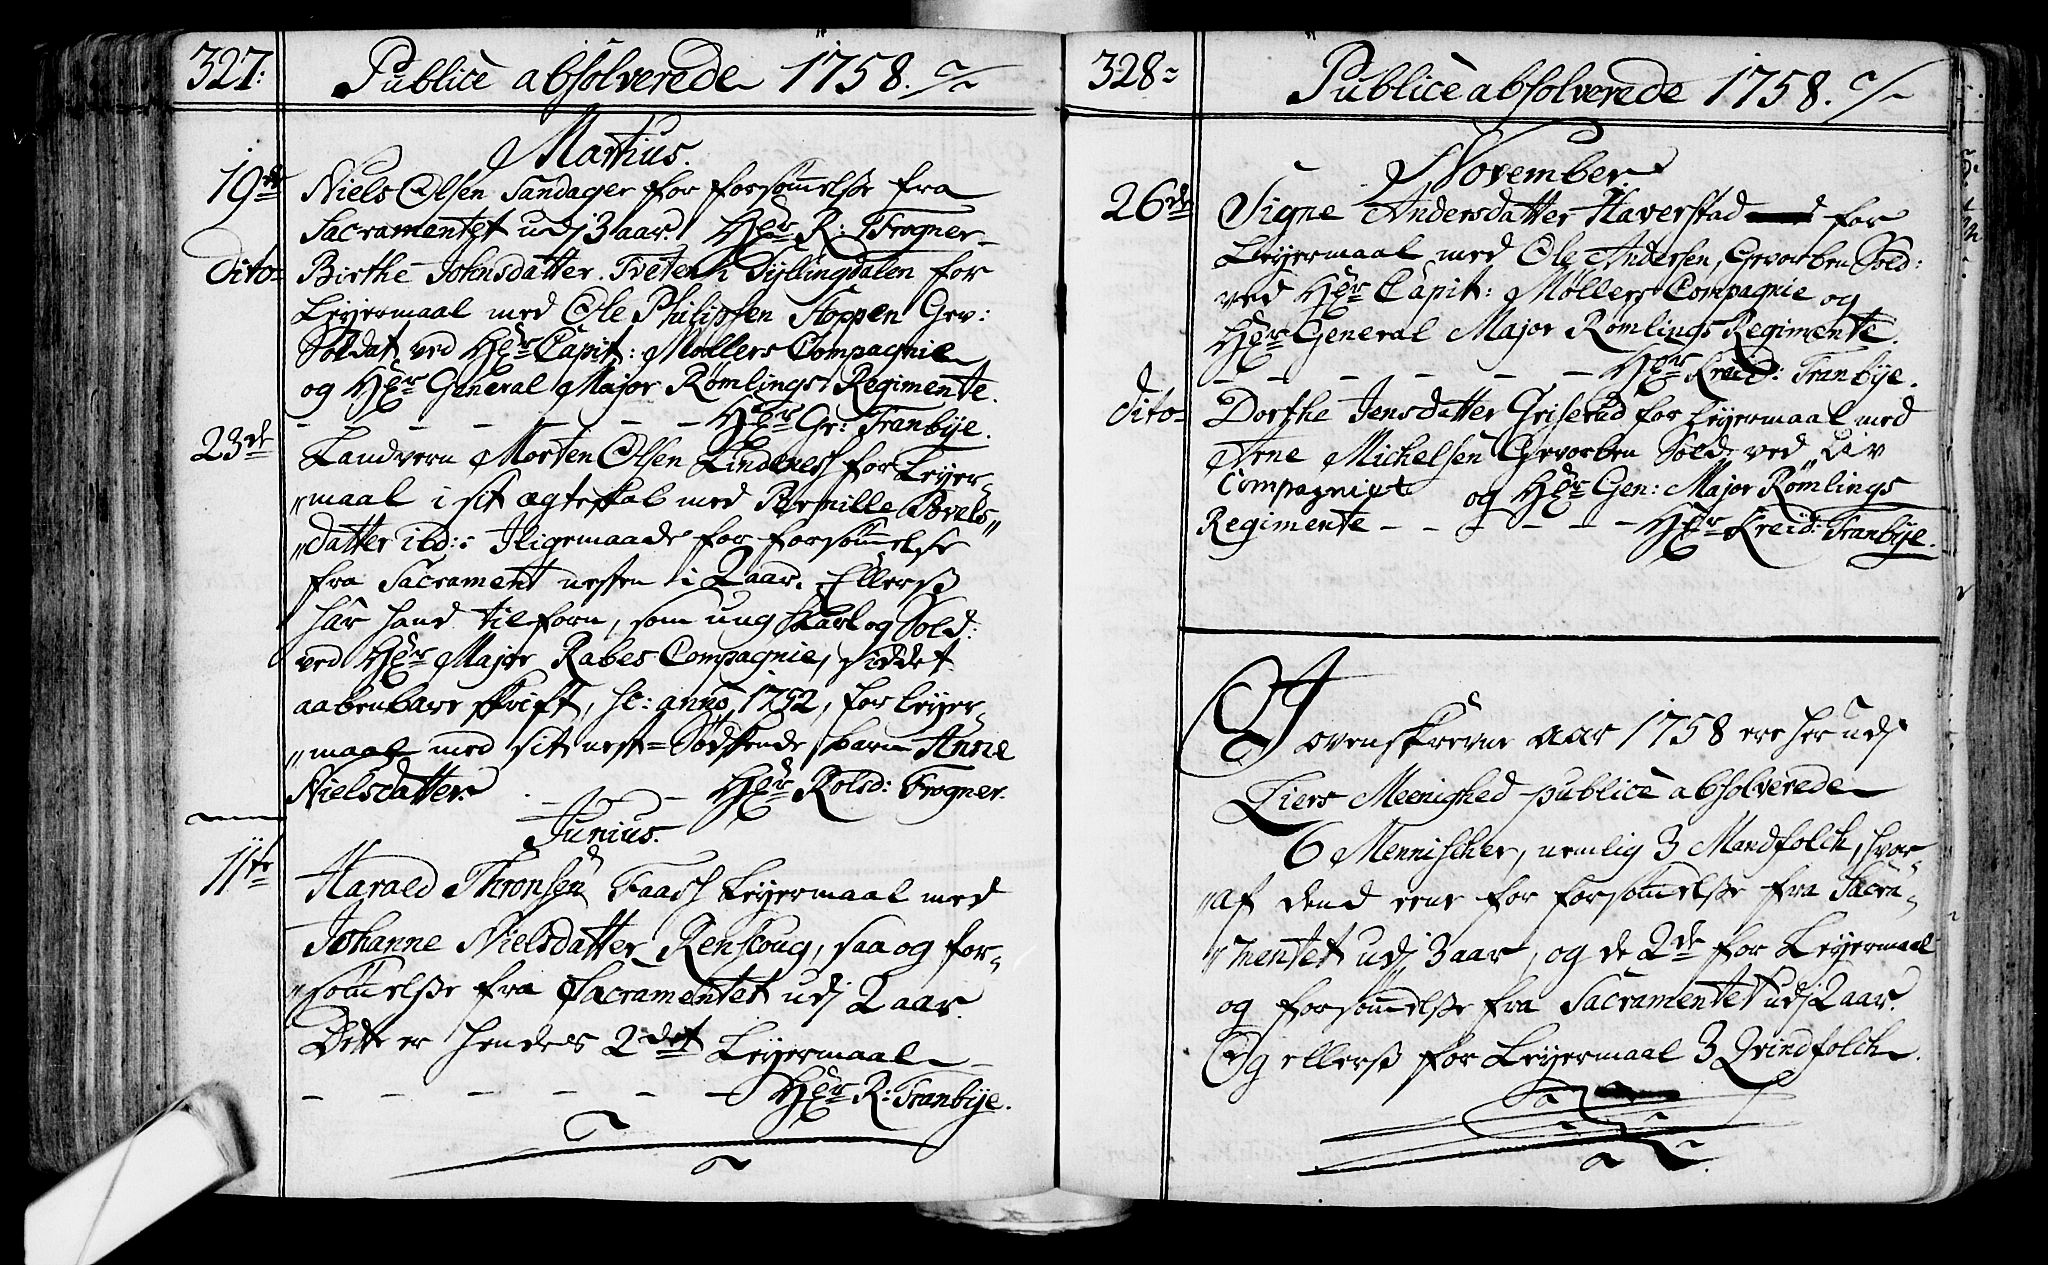 327:
Publicè absolverede 1758.
Martius.
19de Niels Olsen Sandager for forsømelse fra
Sacramentet udj 3 aar. Hør R: Frogner
Dito Birthe Johnsdatter Tveten i Dyllingdalen for
Leyermaal med Ole Philipsen Hoppen Gev:
Soldat ved Hør Capit: Møllers Compagnie
og Hør General Major Rømlings Regimente.
Hør Gr: Tranbÿe.
23de Landvern Morten Olsen Lindenes for Leyer-
"maal i sit ægteskab med Pernille Povels"
"datter ibd: Iligemaade for forsømelse
fra Sacrament nesten i 2 aar. Ellerss
har hand tilforn, som ung Karl og Sold:
ved Hør Major Rabes Compagnie, siddet
aabenbare skrift, sc: annò 1752, for leyer-
"maal med sit nest-Sødskende barn Anne
Nielsdatter. Hør Rolsd: Frogner.
Junius.
11te Harald Thronsen Faass Leyermaal med
Johanne Nielsdatter Renscoug, saa og for-
"sømelsse fra Sacramentet udj 2 aar.
Dette er hendes 2det Leyermaal
Hør R: Tranbÿe.
328
Publicè absolverede 1758.
November
26de Signe Andersdatter Haverstad for
Leyermaal med Ole Andersen, Gevorben Sold:
ved Hør Capit: Møllers Compagnie og
Hør General Major Rømlings Regimente.
Hør Kreid: Tranbÿe.
dito Dorthe Jensdatter Griserud for Leyermaal med
Arne Michelsen Gevorben Sold: ved Liv
Compagniet og Hør Gen: Major Rømlings
Regimente Hør Kreid: Tranbÿe.
I
ovenskrevne aar 1758 ere her udj
Liers Meenighed publicè absolverede
6 Mennischer, nemlig 3 Mandfolch, hvor-
"af dend eene for forsømelsse fra Sacra-
"mentet udj 3 aar, og de 2de for Leyermaal
og forsømmelsse fra Sacramentet udj 2 aar.
Og ellerss for Leyermaal 3 Qvindfolch.